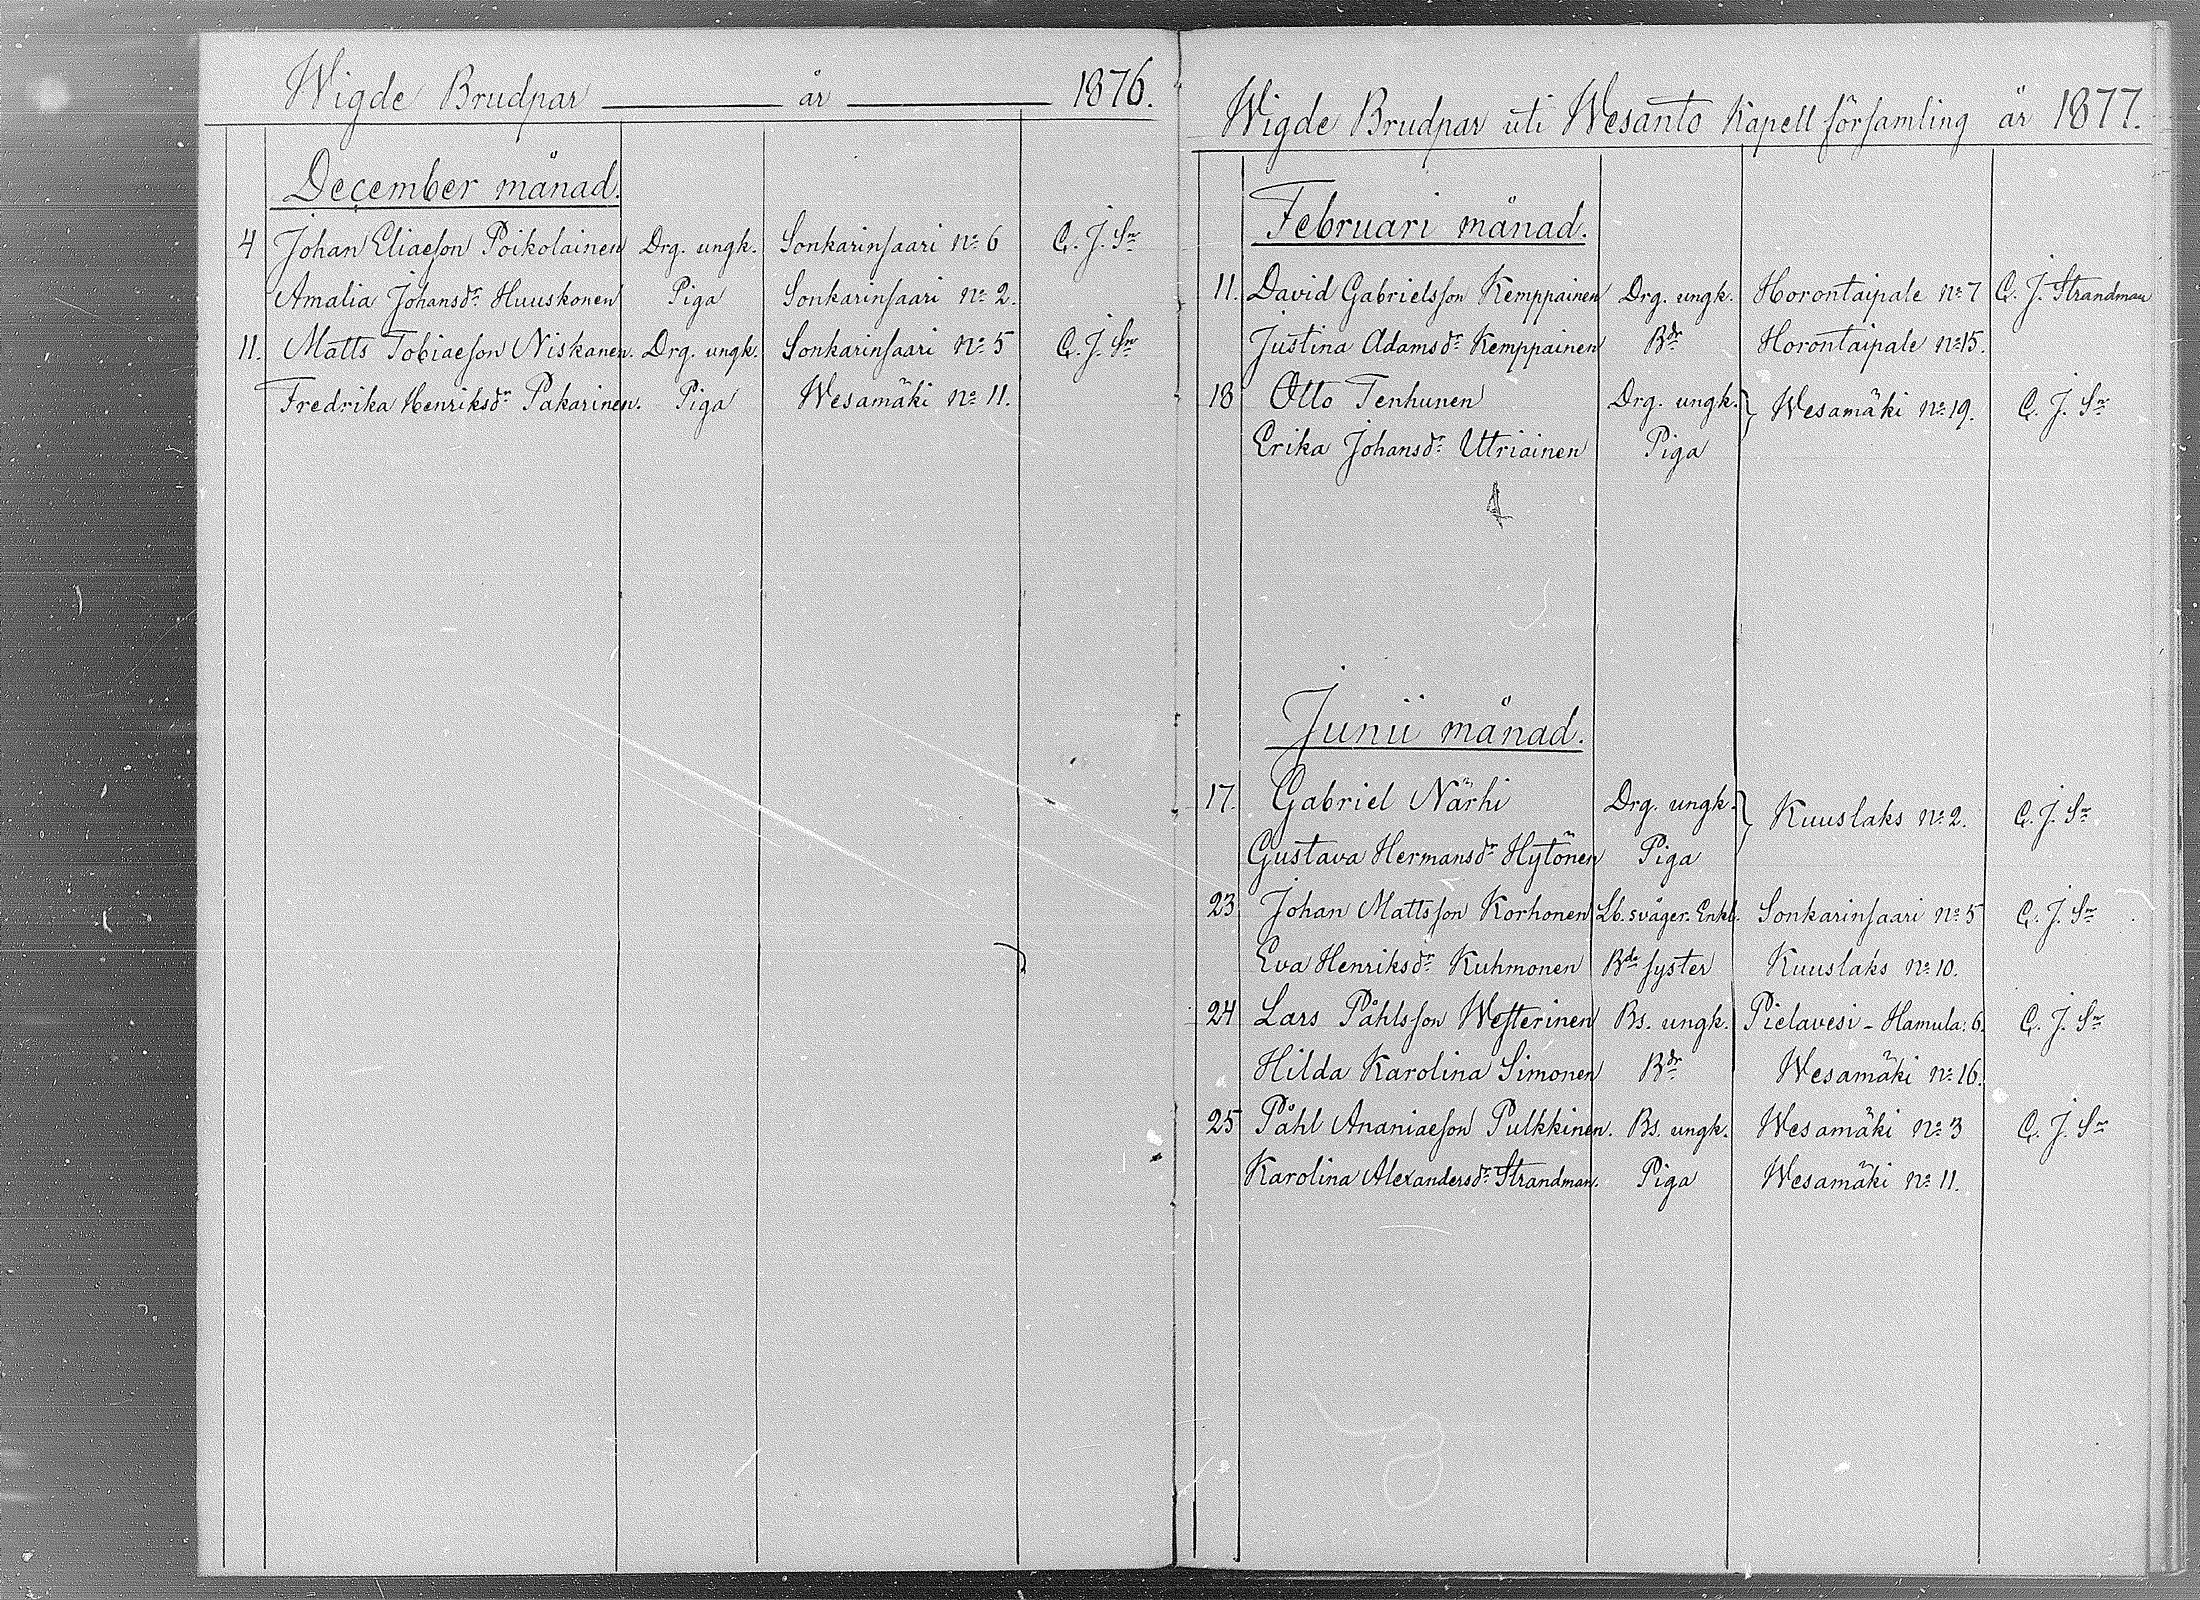 Wigde Brudpar år 1876.
December månad.
4 Johan Eliaeson Poikolainen Drg. ungk. Sonkarinsaari No 6 C. J. Sn
Amalia Johansdr Huuskonen Piga Sonkarinsaari No 2.
11. Matts Tobiaeson Niskanen. Drg. ungk. Sonkarinsaari No 5 C. J. Sn
Fredrika Henriksdr Pakarinen. Piga Wesamäki No 11.
Wigde Brudpar uti Wesanto Kapell församling år 1877.
Februari månad.
11. David Gabrielsson Kemppainen Drg. ungk. Horontaipale No 7 C. J. Strandman
Justina Adamsdr Kemppainen Bdr Horontaipale No 15.
18 Otto Tenhunen Drg. ungk. } Wesamäki No 19. C. J. Sn
Erika Johansdr Utriainen Piga
Junii månad.
17. Gabriel Närhi Drg. ungk. } Kuuslaks No 2. C. J. Sn
Gustava Hermansdr Hytönen Piga
23 Johan Mattsson Korhonen Lb. svåger. Enkl. Sonkarinsaari No 5 C. J. Sn
Eva Henriksdr Kuhmonen Bde syster Kuuslaks No 10.
24 Lars Påhlsson Westerinen Bs. ungk. Pielavesi - Hamula: 6. C. J. Sn
Hilda Karolina Simonen Bdr Wesamäki No 16.
25 Påhl Ananiaeson Pulkkinen. Bs. ungk. Wesamäki No 3 C. J. Sn
Karolina Alexandersdr Strandman. Piga Wesamäki No 11.